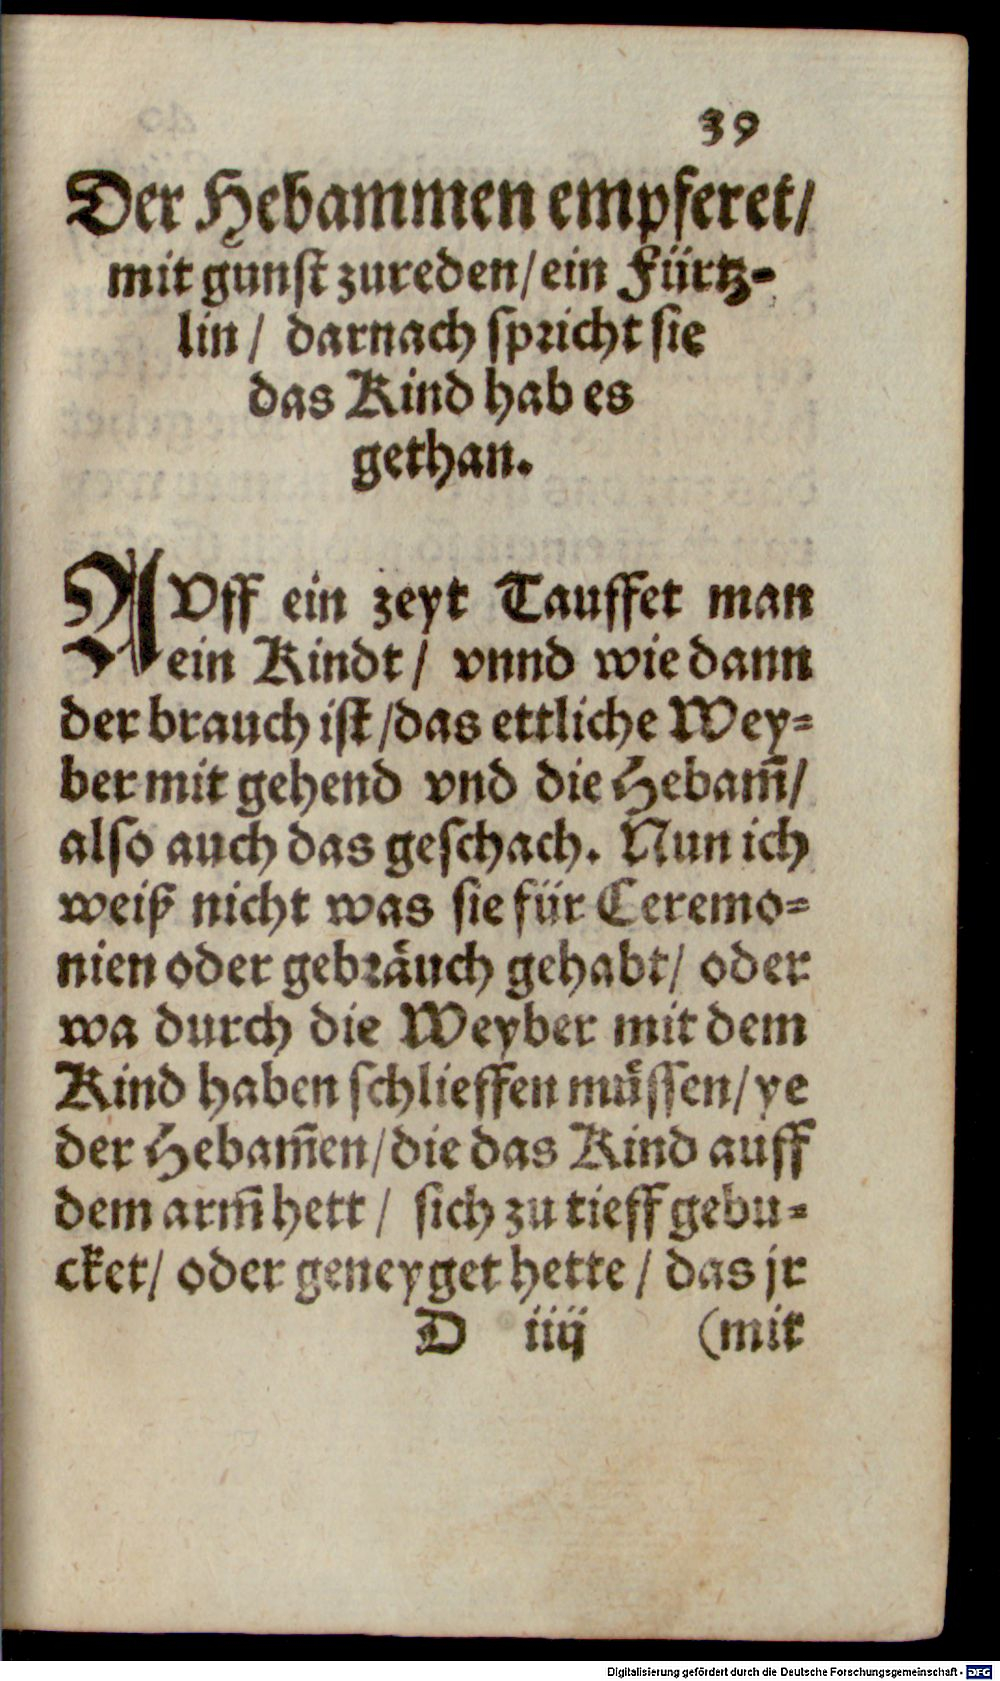 39
Der Hebammen empferet/
mit gunst zureden/ ein Fürtz-
lin/ darnach spricht sie
das Kind hab es
gethan.
AVff ein zeyt Tauffet man
ein Kindt/ vnnd wie dann
der brauch ist/ das ettliche Wey-
ber mit gehend vnd die Hebam̄/
also auch das geschach. Nun ich
weiß nicht was sie für Ceremo-
nien oder gebraͤuch gehabt/ oder
wa durch die Weyber mit dem
Kind haben schlieffen muͤssen/ ye
der Hebam̄en/ die das Kind auff
dem arm̄ hett/ sich zu tieff gebu-
cket/ oder geneyget hette/ das jr
D iiij (mit
Digitalisierung gefördert durch die Deutsche Forschungsgemeinschaft - DFG